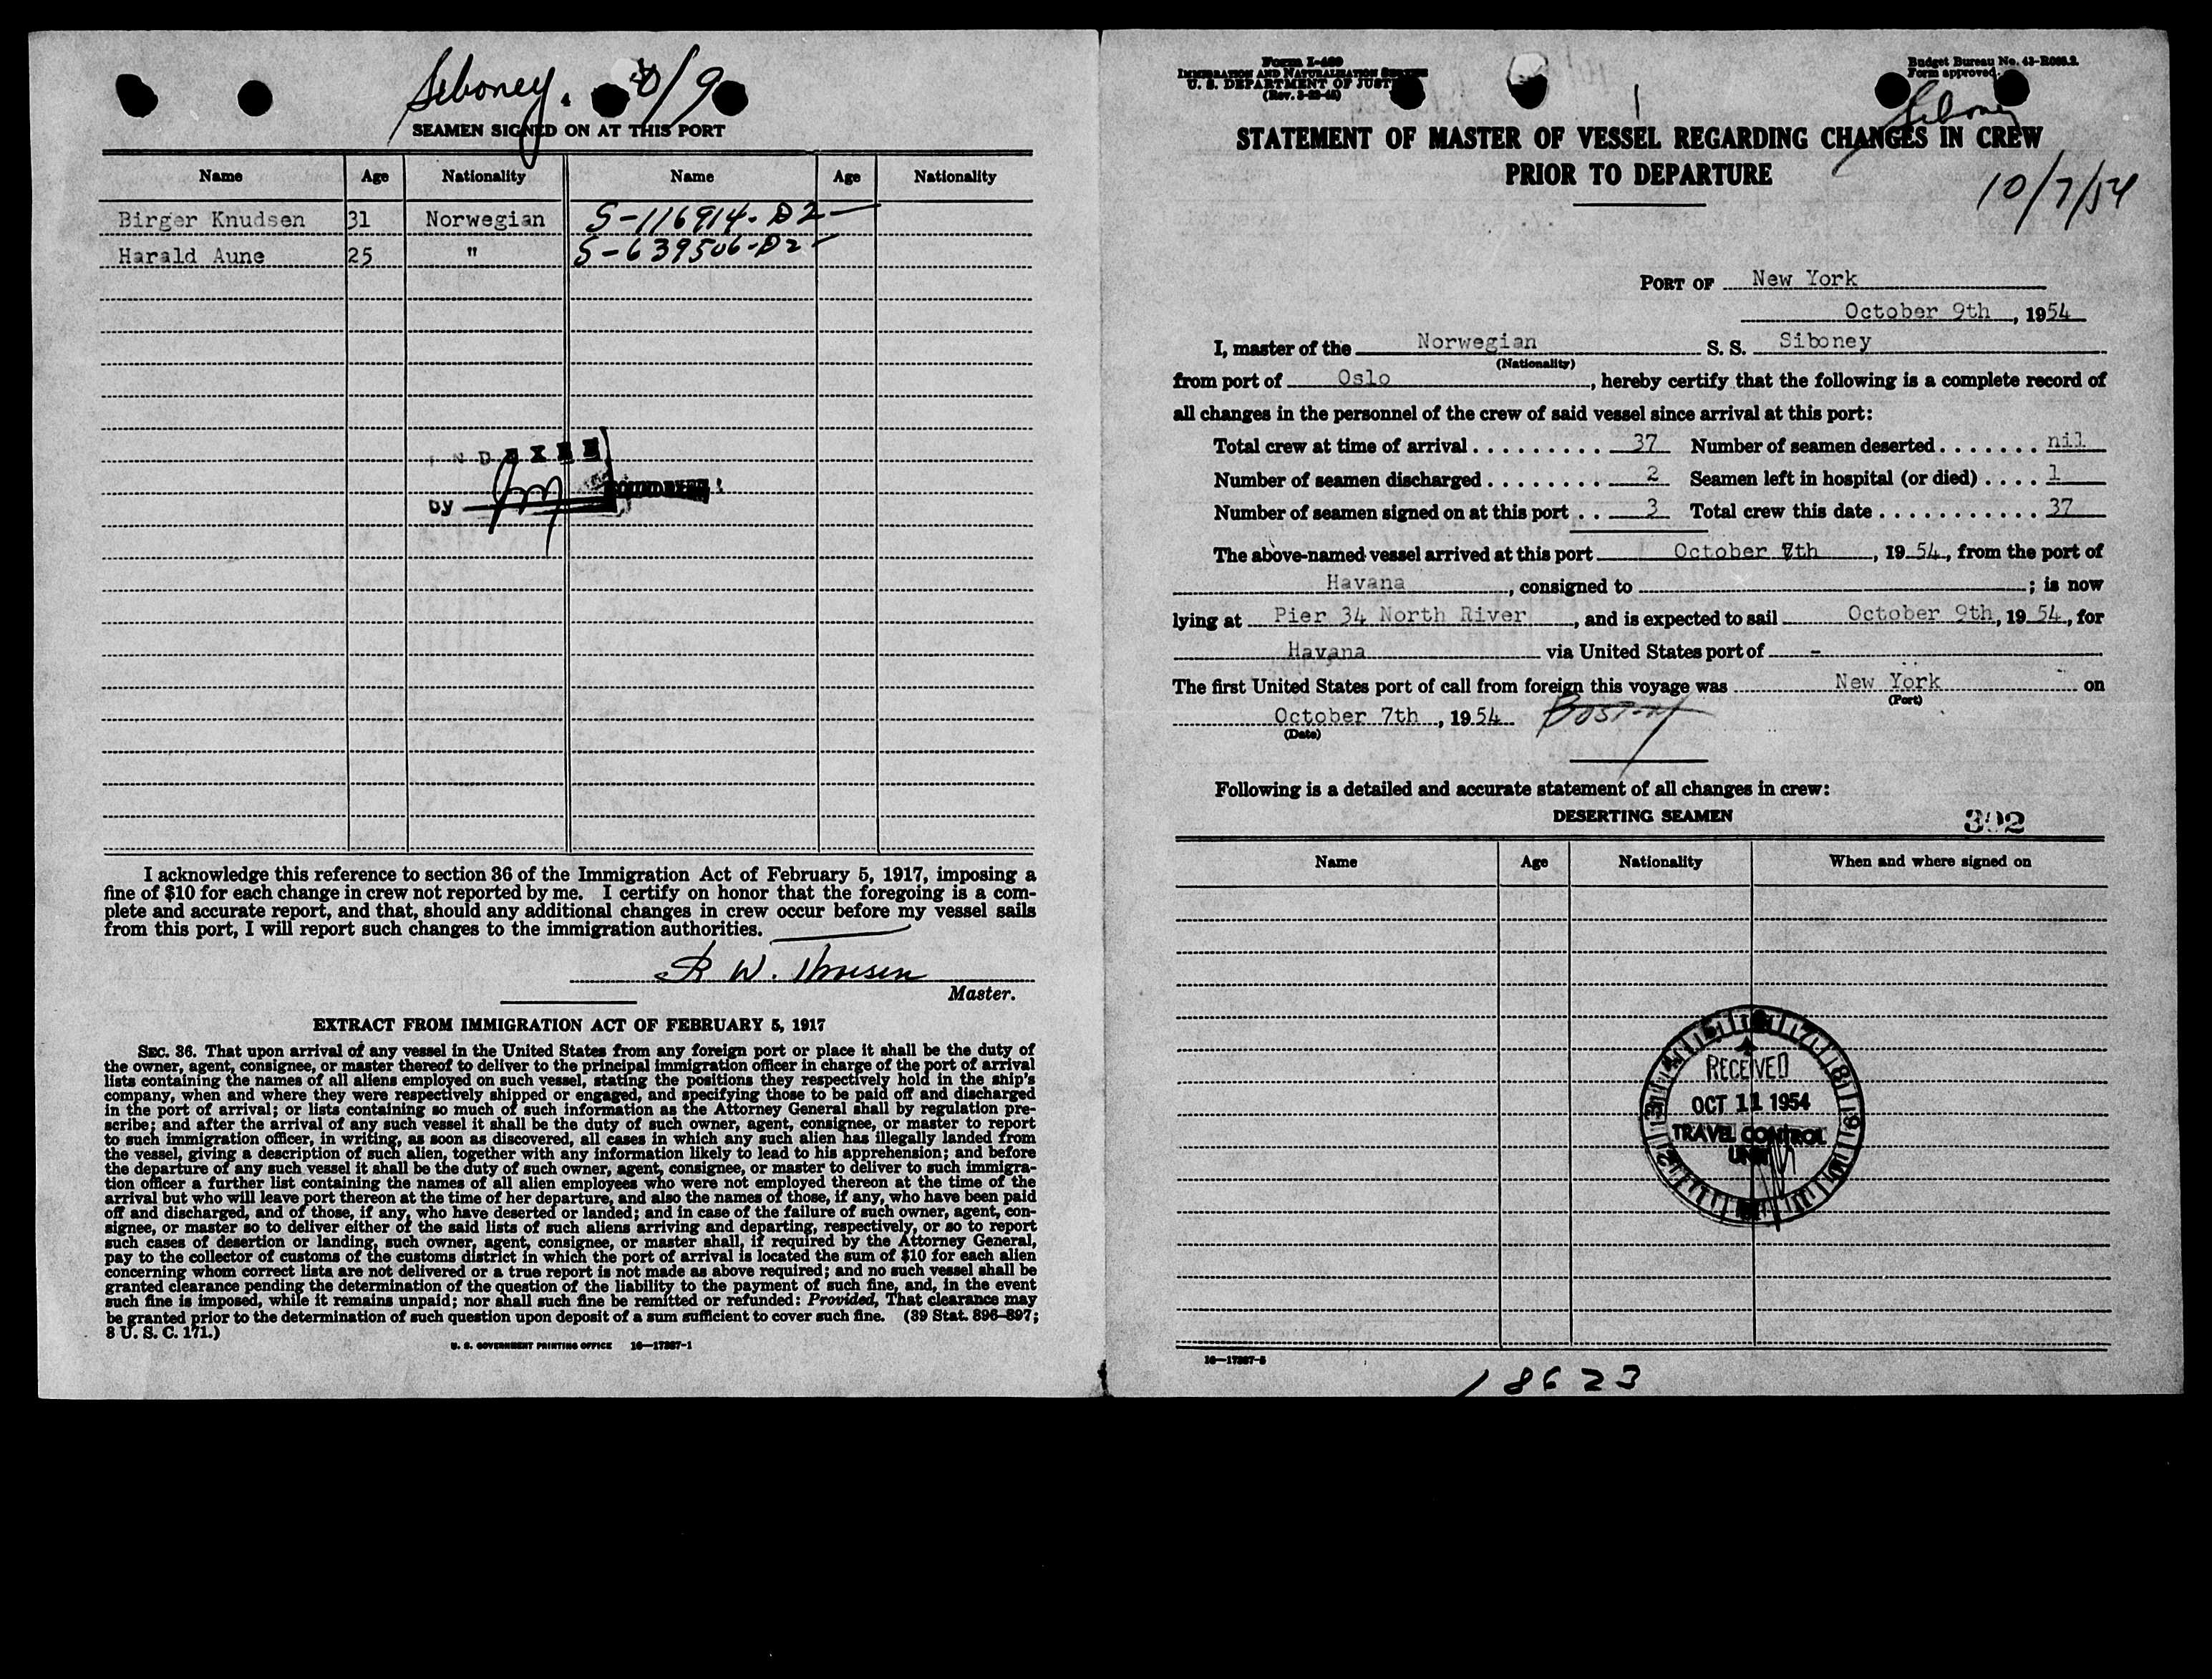 Siboney. 10/9
SEAMEN SIGNED ON AT THIS PORT
Name Age Nationality Name Age Nationality
Birger Knudsen 31 Norwegian S-116914-D2
Harald Aune 25 " S-639506-D2
INDEXED
by
I acknowledge this reference to section 36 of the Immigration Act of February 5, 1917, imposing a
fine of $10 for each change in crew not reported by me. I certify on honor that the foregoing is a com-
plete and accurate report, and that, should any additional changes in crew occur before my vessel sails
from this port, I will report such changes to the immigration authorities.
Master.
EXTRACT FROM IMMIGRATION ACT OF FEBRUARY 5, 1917
SEC. 36. That upon arrival of any vessel in the United States from any foreign port or place it shall be the duty of
the owner, agent, consignee, or master thereof to deliver to the principal immigration officer in charge of the port of arrival
lists containing the names of all aliens employed on such vessel, stating the positions they respectively hold in the ship's
company, when and where they were respectively shipped or engaged, and specifying those to be paid off and discharged
in the port of arrival; or lists containing so much of such information as the Attorney General shall by regulation pre-
scribe; and after the arrival of any such vessel it shall be the duty of such owner, agent, consignee, or master to report
to such immigration officer, in writing, as soon as discovered, all cases in which any such alien has illegally landed from
the vessel, giving a description of such alien, together with any information likely to lead to his apprehension; and before
the departure of any such vessel it shall be the duty of such owner, agent, consignee, or master to deliver to such immigra-
tion officer a further list containing the names of all alien employees who were not employed thereon at the time of the
arrival but who will leave port thereon at the time of her departure, and also the names of those, if any, who have been paid
off and discharged, and of those, if any, who have deserted or landed; and in case of the failure of such owner, agent, con-
signee, or master so to deliver either of the said lists of such aliens arriving and departing, respectively, or so to report
such cases of desertion or landing, such owner, agent, consignee, or master shall, if required by the Attorney General,
pay to the collector of customs of the customs district in which the port of arrival is located the sum of $10 for each alien
concerning whom correct lists are not delivered or a true report is not made as above required; and no such vessel shall be
granted clearance pending the determination of the question of the liability to the payment of such fine, and, in the event
such fine is imposed, while it remains unpaid; nor shall such fine be remitted or refunded: Provided, That clearance may
be granted prior to the determination of such question upon deposit of a sum sufficient to cover such fine. (39 Stat. 896-897;
8 U. S. C. 171.)
U. S. GOVERNMENT PRINTING OFFICE 16—17387-1
Form I-489
IMMIGRATION AND NATURALIZATION SERVICE
U. S. DEPARTMENT OF JUSTICE
Budget Bureau No. 43-R088.2.
Form approved.
Siboney
STATEMENT OF MASTER OF VESSEL REGARDING CHANGES IN CREW
PRIOR TO DEPARTURE
10/7/54
PORT OF New York
October 9th, 1954
I, master of the Norwegian S. S. Siboney
(Nationality)
from port of Oslo, hereby certify that the following is a complete record of
all changes in the personnel of the crew of said vessel since arrival at this port:
Total crew at time of arrival . . . . . . . . . 37 Number of seamen deserted . . . . . . . nil
Number of seamen discharged . . . . . . . . 2 Seamen left in hospital (or died) . . . . 1
Number of seamen signed on at this port . . 3 Total crew this date . . . . . . . . . . . 37
The above-named vessel arrived at this port October 7th, 1954, from the port of
Havana, consigned to ; is now
lying at Pier 34 North River, and is expected to sail October 9th, 1954, for
Havana via United States port of -
The first United States port of call from foreign this voyage was New York on
(Port)
October 7th, 1954 Boston
(Date)
Following is a detailed and accurate statement of all changes in crew:
DESERTING SEAMEN
392
Name Age Nationality When and where signed on
RECEIVED
OCT 11 1954
TRAVEL CONTROL
UNIT
16—17387-5
18623